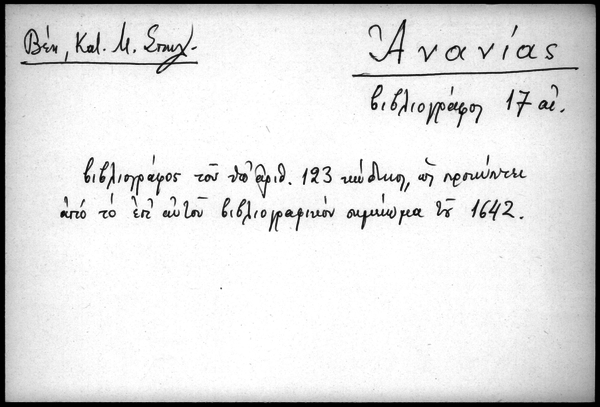 Βέη, Κατ. Μ. Σπηλ.
Ἀνανίας
βιβλιογράφος 17 αἰ.
βιβλιογράφος τοῦ ὑπ' ἀριθ. 123 κώδικος, ὡς προκύπτει
ἀπό τό ἐπ' αὐτοῦ βιβλιογραφικόν σημείωμα τοῦ 1642.